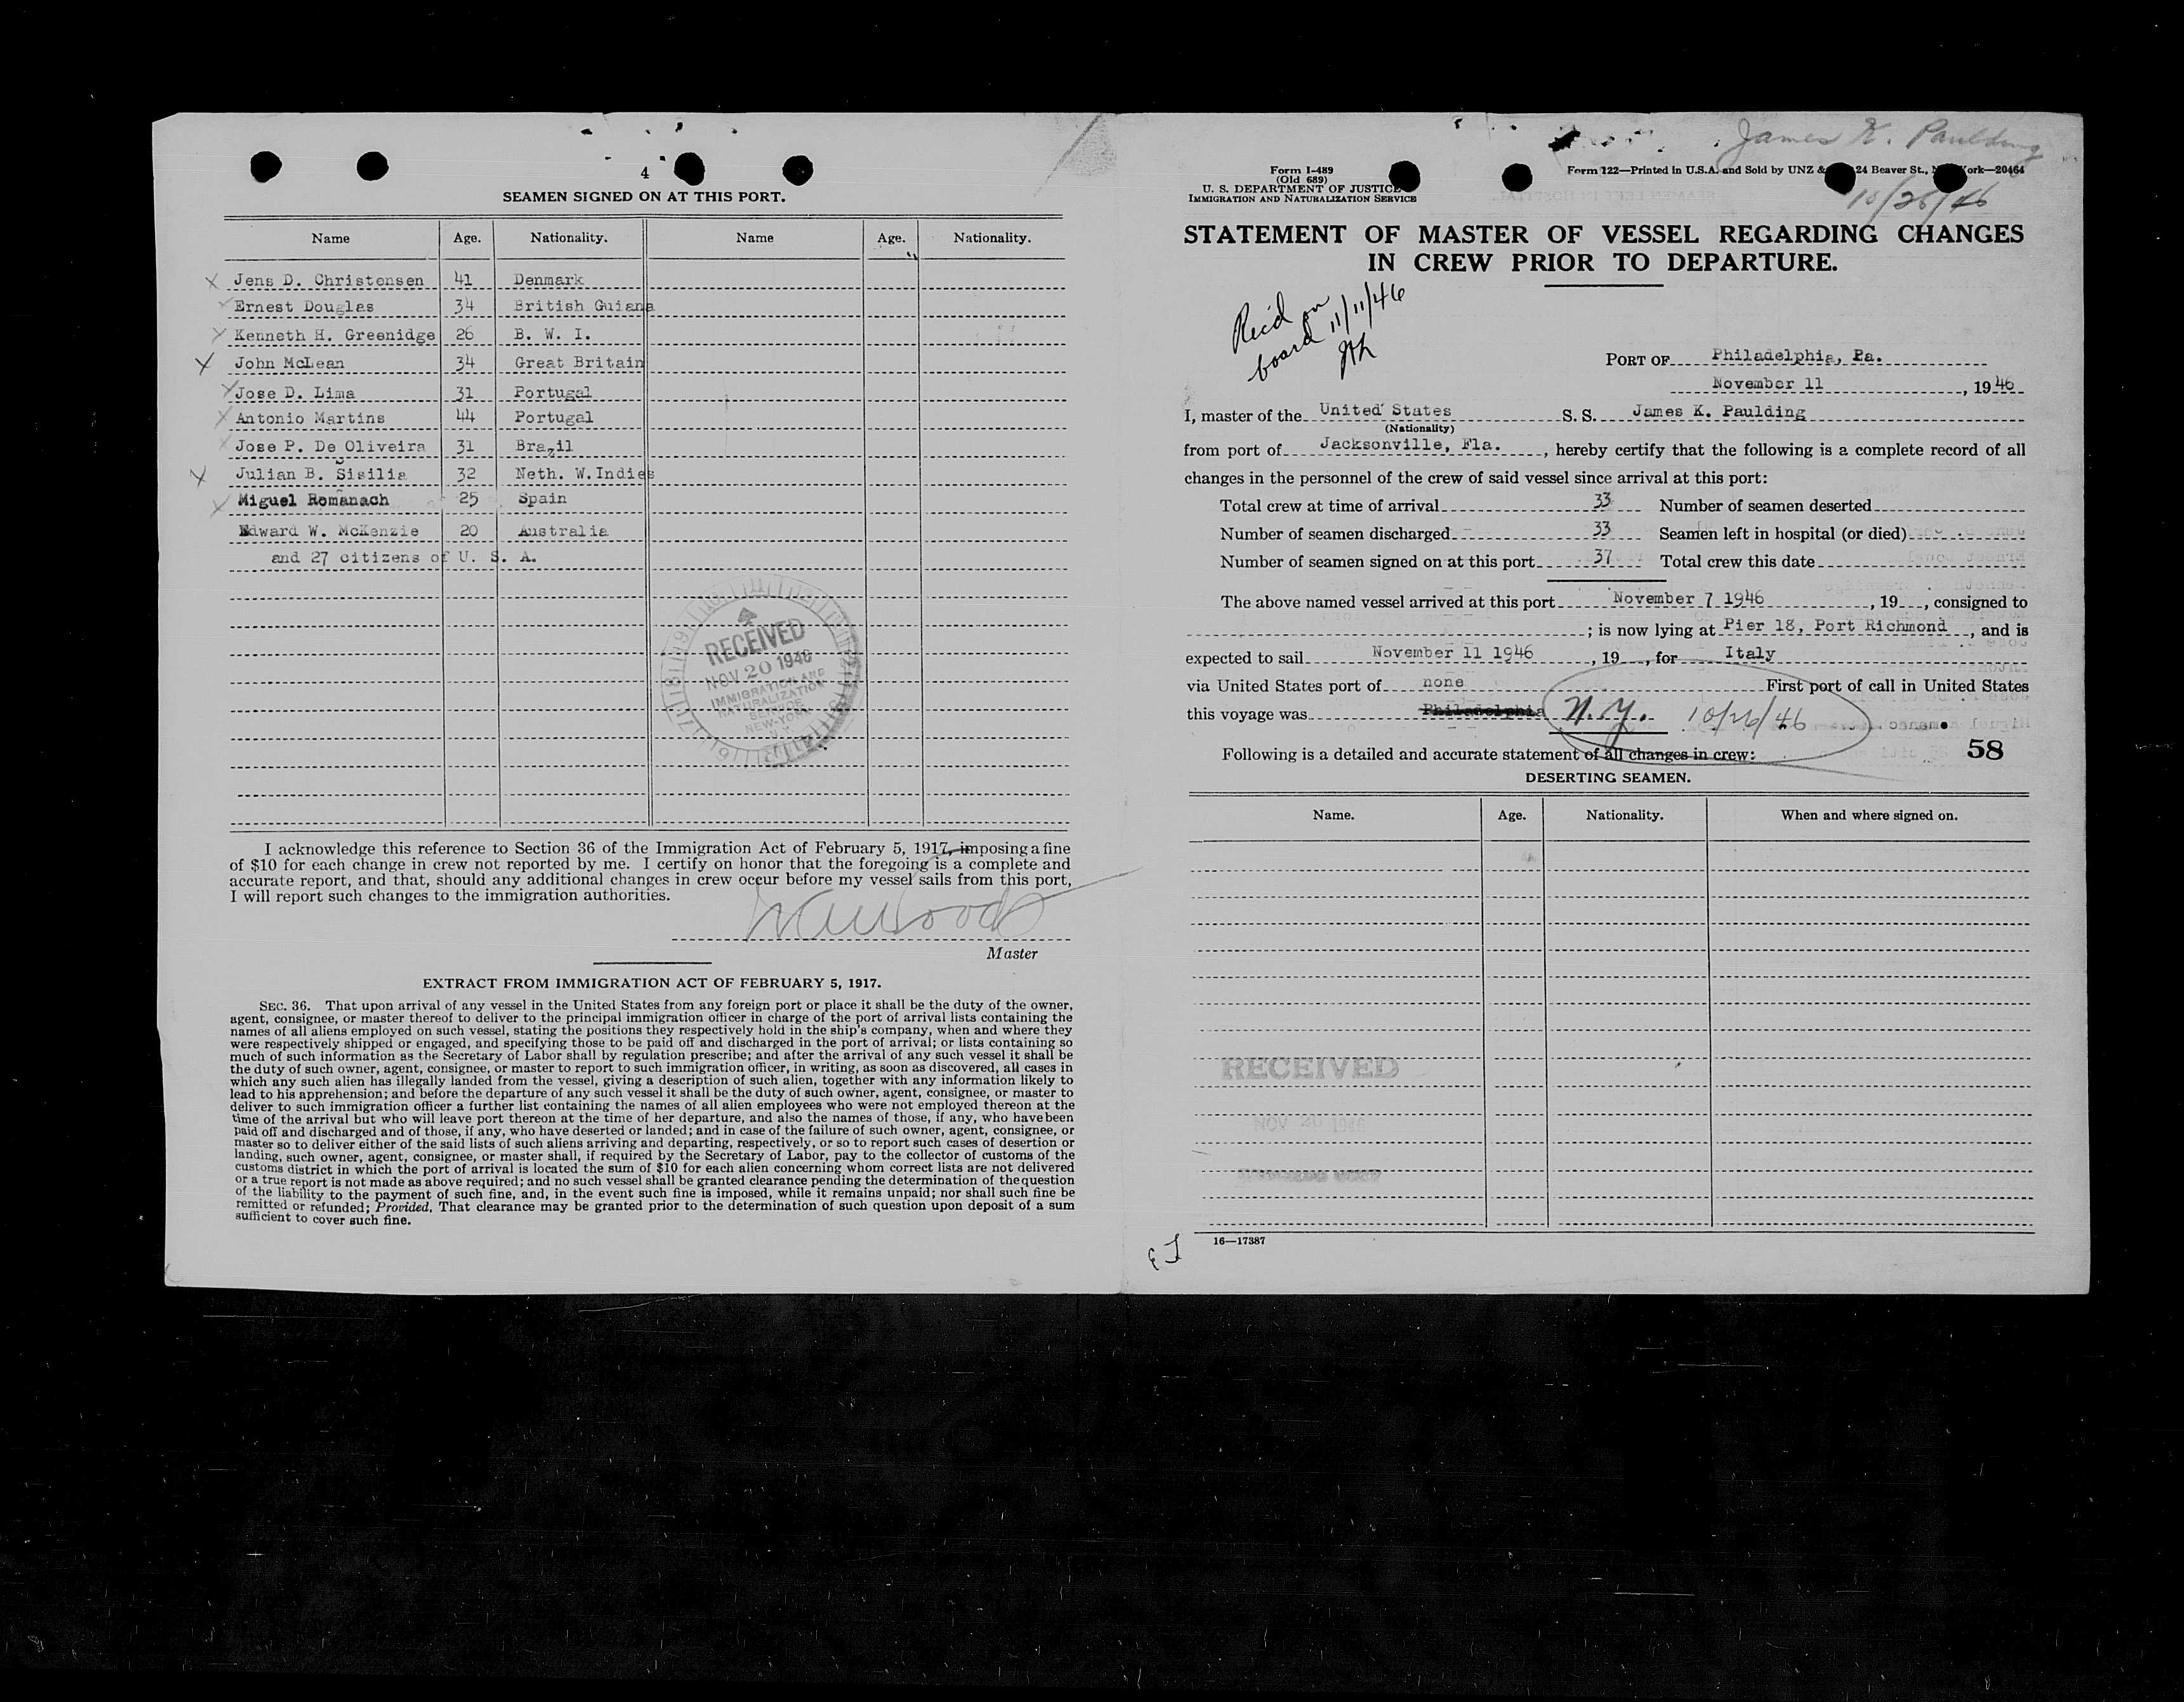 4
SEAMEN SIGNED ON AT THIS PORT.
Name Age. Nationality. Name Age. Nationality.
X Jens D. Christensen 41 Denmark
X Ernest Douglas 34 British Guiana
X Kenneth H. Greenidge 26 B. W. I.
X John McLean 34 Great Britain
X Jose D. Lima 31 Portugal
X Antonio Martins 44 Portugal
X Jose P. De Oliveira 31 Brazil
X Julian B. Sisilia 32 Neth. W.Indies
X Miguel Romanach 25 Spain
Edward W. McKenzie 20 Australia
and 27 citizens of U. S. A.
RECEIVED
NOV 20 1946
IMMIGRATION AND
NATURALIZATION
SERVICE
NEW-YORK
N.Y.
I acknowledge this reference to Section 36 of the Immigration Act of February 5, 1917, imposing a fine
of $10 for each change in crew not reported by me. I certify on honor that the foregoing is a complete and
accurate report, and that, should any additional changes in crew occur before my vessel sails from this port,
I will report such changes to the immigration authorities.
Master
EXTRACT FROM IMMIGRATION ACT OF FEBRUARY 5, 1917.
SEC. 36. That upon arrival of any vessel in the United States from any foreign port or place it shall be the duty of the owner,
agent, consignee, or master thereof to deliver to the principal immigration officer in charge of the port of arrival lists containing the
names of all aliens employed on such vessel, stating the positions they respectively hold in the ship's company, when and where they
were respectively shipped or engaged, and specifying those to be paid off and discharged in the port of arrival; or lists containing so
much of such information as the Secretary of Labor shall by regulation prescribe; and after the arrival of any such vessel it shall be
the duty of such owner, agent, consignee, or master to report to such immigration officer, in writing, as soon as discovered, all cases in
which any such alien has illegally landed from the vessel, giving a description of such alien, together with any information likely to
lead to his apprehension; and before the departure of any such vessel it shall be the duty of such owner, agent, consignee, or master to
deliver to such immigration officer a further list containing the names of all alien employees who were not employed thereon at the
time of the arrival but who will leave port thereon at the time of her departure, and also the names of those, if any, who have been
paid off and discharged and of those, if any, who have deserted or landed; and in case of the failure of such owner, agent, consignee, or
master so to deliver either of the said lists of such aliens arriving and departing, respectively, or so to report such cases of desertion or
landing, such owner, agent, consignee, or master shall, if required by the Secretary of Labor, pay to the collector of customs of the
customs district in which the port of arrival is located the sum of $10 for each alien concerning whom correct lists are not delivered
or a true report is not made as above required; and no such vessel shall be granted clearance pending the determination of the question
of the liability to the payment of such fine, and, in the event such fine is imposed, while it remains unpaid; nor shall such fine be
remitted or refunded; Provided, That clearance may be granted prior to the determination of such question upon deposit of a sum
sufficient to cover such fine.
James K. Paulding
10/26/46
Form I-489
(Old 689)
U. S. DEPARTMENT OF JUSTICE
IMMIGRATION AND NATURALIZATION SERVICE
Form 122—Printed in U.S.A. and Sold by UNZ & 24 Beaver St., N ork—20464
STATEMENT OF MASTER OF VESSEL REGARDING CHANGES
IN CREW PRIOR TO DEPARTURE.
Rec'd on
board 11/11/46
PORT OF Philadelphia, Pa.
November 11, 1946
I, master of the United States S. S. James K. Paulding
(Nationality)
from port of Jacksonville, Fla., hereby certify that the following is a complete record of all
changes in the personnel of the crew of said vessel since arrival at this port:
Total crew at time of arrival 33 Number of seamen deserted
Number of seamen discharged 33 Seamen left in hospital (or died)
Number of seamen signed on at this port 37 Total crew this date
The above named vessel arrived at this port November 7 1946, 19 , consigned to
; is now lying at Pier 18, Port Richmond, and is
expected to sail November 11 1946, 19 , for Italy
via United States port of none First port of call in United States
this voyage was Philadelphia N.Y. 10/26/46
Following is a detailed and accurate statement of all changes in crew: 58
DESERTING SEAMEN.
Name. Age. Nationality. When and where signed on.
RECEIVED
NOV 20 1946
16—17387